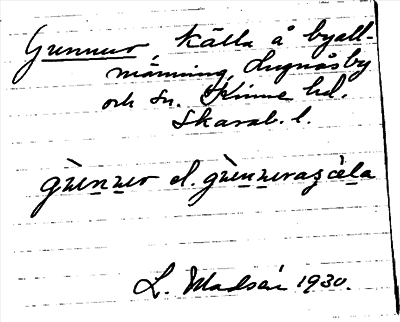 Gunnur, källa å byall-
männing, Lugnåsby
och sn. Kinne hd.
Skarab. l.
gùenner el. gùenneraʂ cèla
L. Madsén 1930.